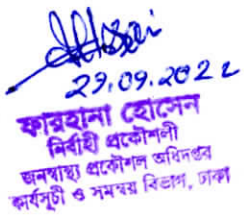 29.09.2022
ফারহানা হোসেন
নির্বাহী প্রকৌশলী
জনস্বাস্থ্য প্রকৌশল অধিদপ্তর
কার্যসূচী ও সমন্বয় বিভাগ, ঢাকা